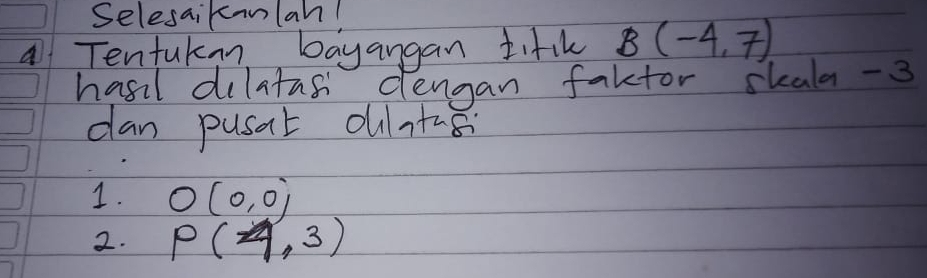 Selesaikanlah!
1. Tentukan bayangan titik B (-4,7)
hasil dilatasi dengan faktor skala -3
dan pusat dilatasi
1. O (0,0)
2. P ( ,3)